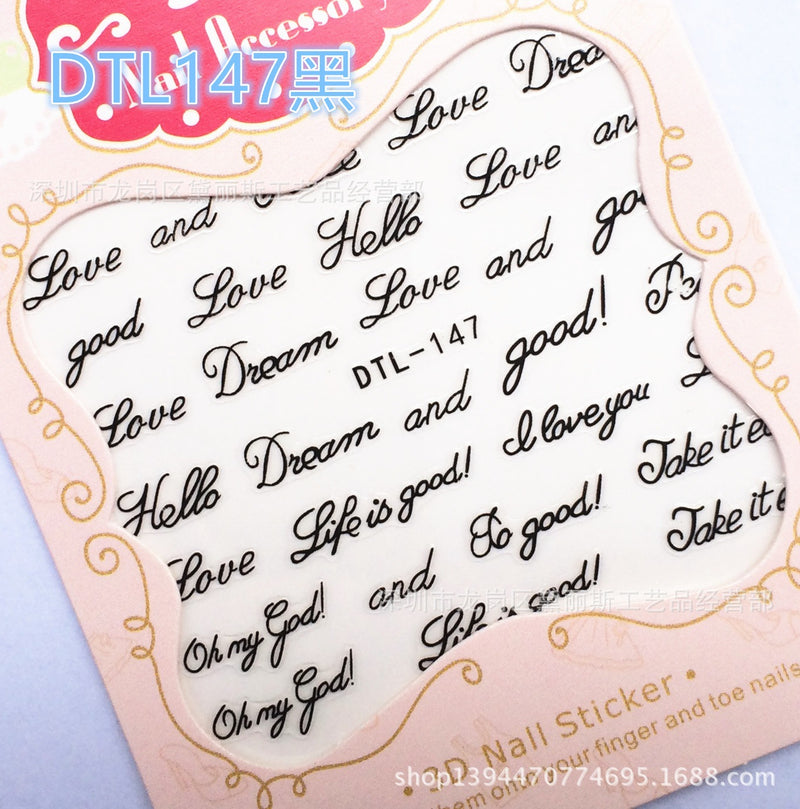 Nail Accessory
DTL147黑
Love
深圳市龙岗区黛丽斯工艺品经营部
Love and
Love and
good Love Hello
Love Dream Love and
DTL-147
Hello Dream and good!
Love Life is good! I love you
Oh my God! and So good! Take it
Oh my God! Life is good! Take it
深圳市龙岗区黛丽斯工艺品经营部
3D Nail Sticker
them onto your finger and toe nails
shop1394470774695.1688.com